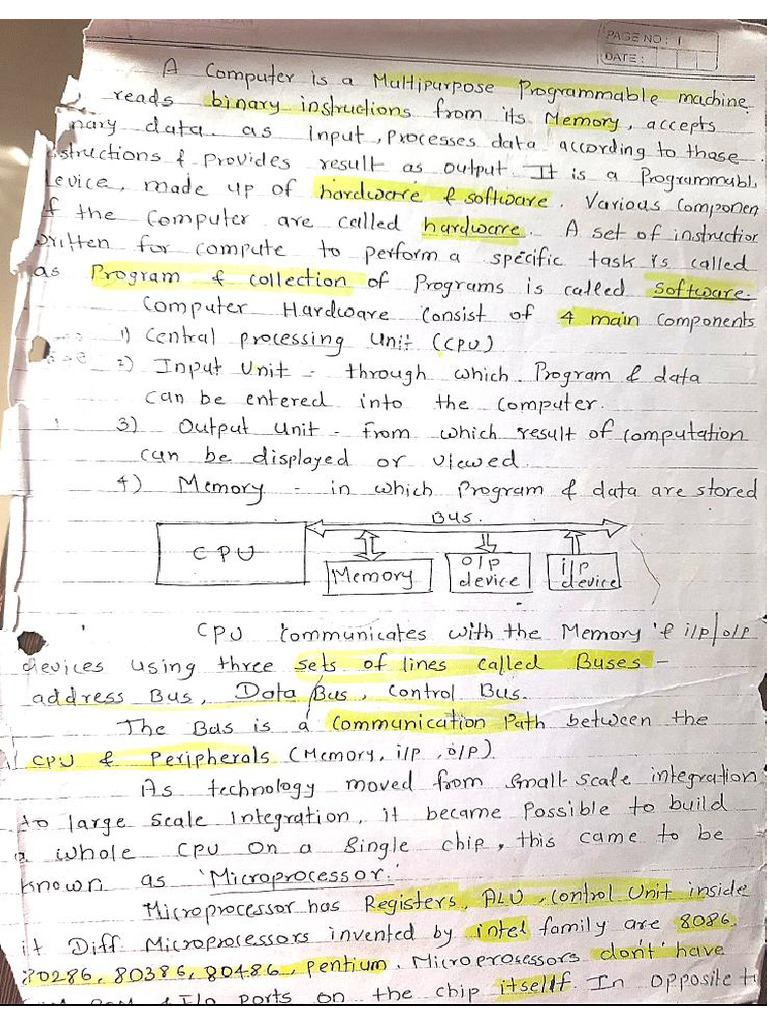 PAGE NO: 1
DATE:
A Computer is a Multipurpose Programmable machine.
reads binary instructions from its Memory, accepts
nary data. as input, processes data according to those
structions & Provides result as output. It is a Programmabl
evice, made up of hardware & software. Various Componen
f the Computer are called hardware. A set of instruction
written for compute to perform a specific task is called
as Program & collection of Programs is called software.
Computer Hardware Consist of 4 main Components
1) Central processing Unit (CPU)
2) Input Unit - through which Program & data
can be entered into the computer.
3) Output unit - from which result of computation
can be displayed or viewed.
4) Memory - in which Program & data are stored
Bus.
CPU
Memory
O/p device
i/p device
CPU Communicates with the Memory & i/p/o/p
devices using three sets of lines called Buses -
address Bus, Data Bus, Control Bus.
The Bus is a Communication Path between the
CPU & Peripherals (Memory, i/p, o/p).
As technology moved from small-scale integration
to large scale Integration, it became Possible to build
a whole CPU on a single chip, this came to be
known as 'Microprocessor.'
Microprocessor has Registers, ALU, Control Unit inside
it Diff. Microprocessors invented by intel family are 8086,
80286, 80386, 80486, pentium. Microprocessors don't have
ROM & I/o ports on the chip itsellf. In opposite t